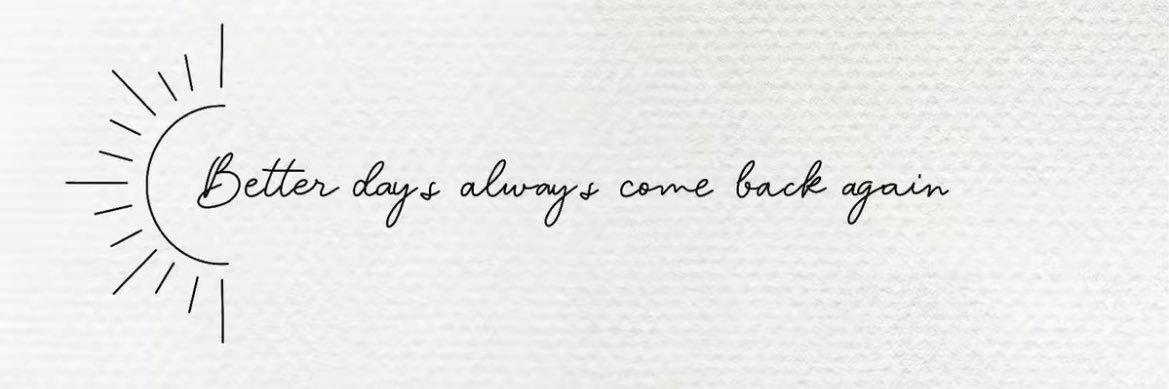 Better days always come back again